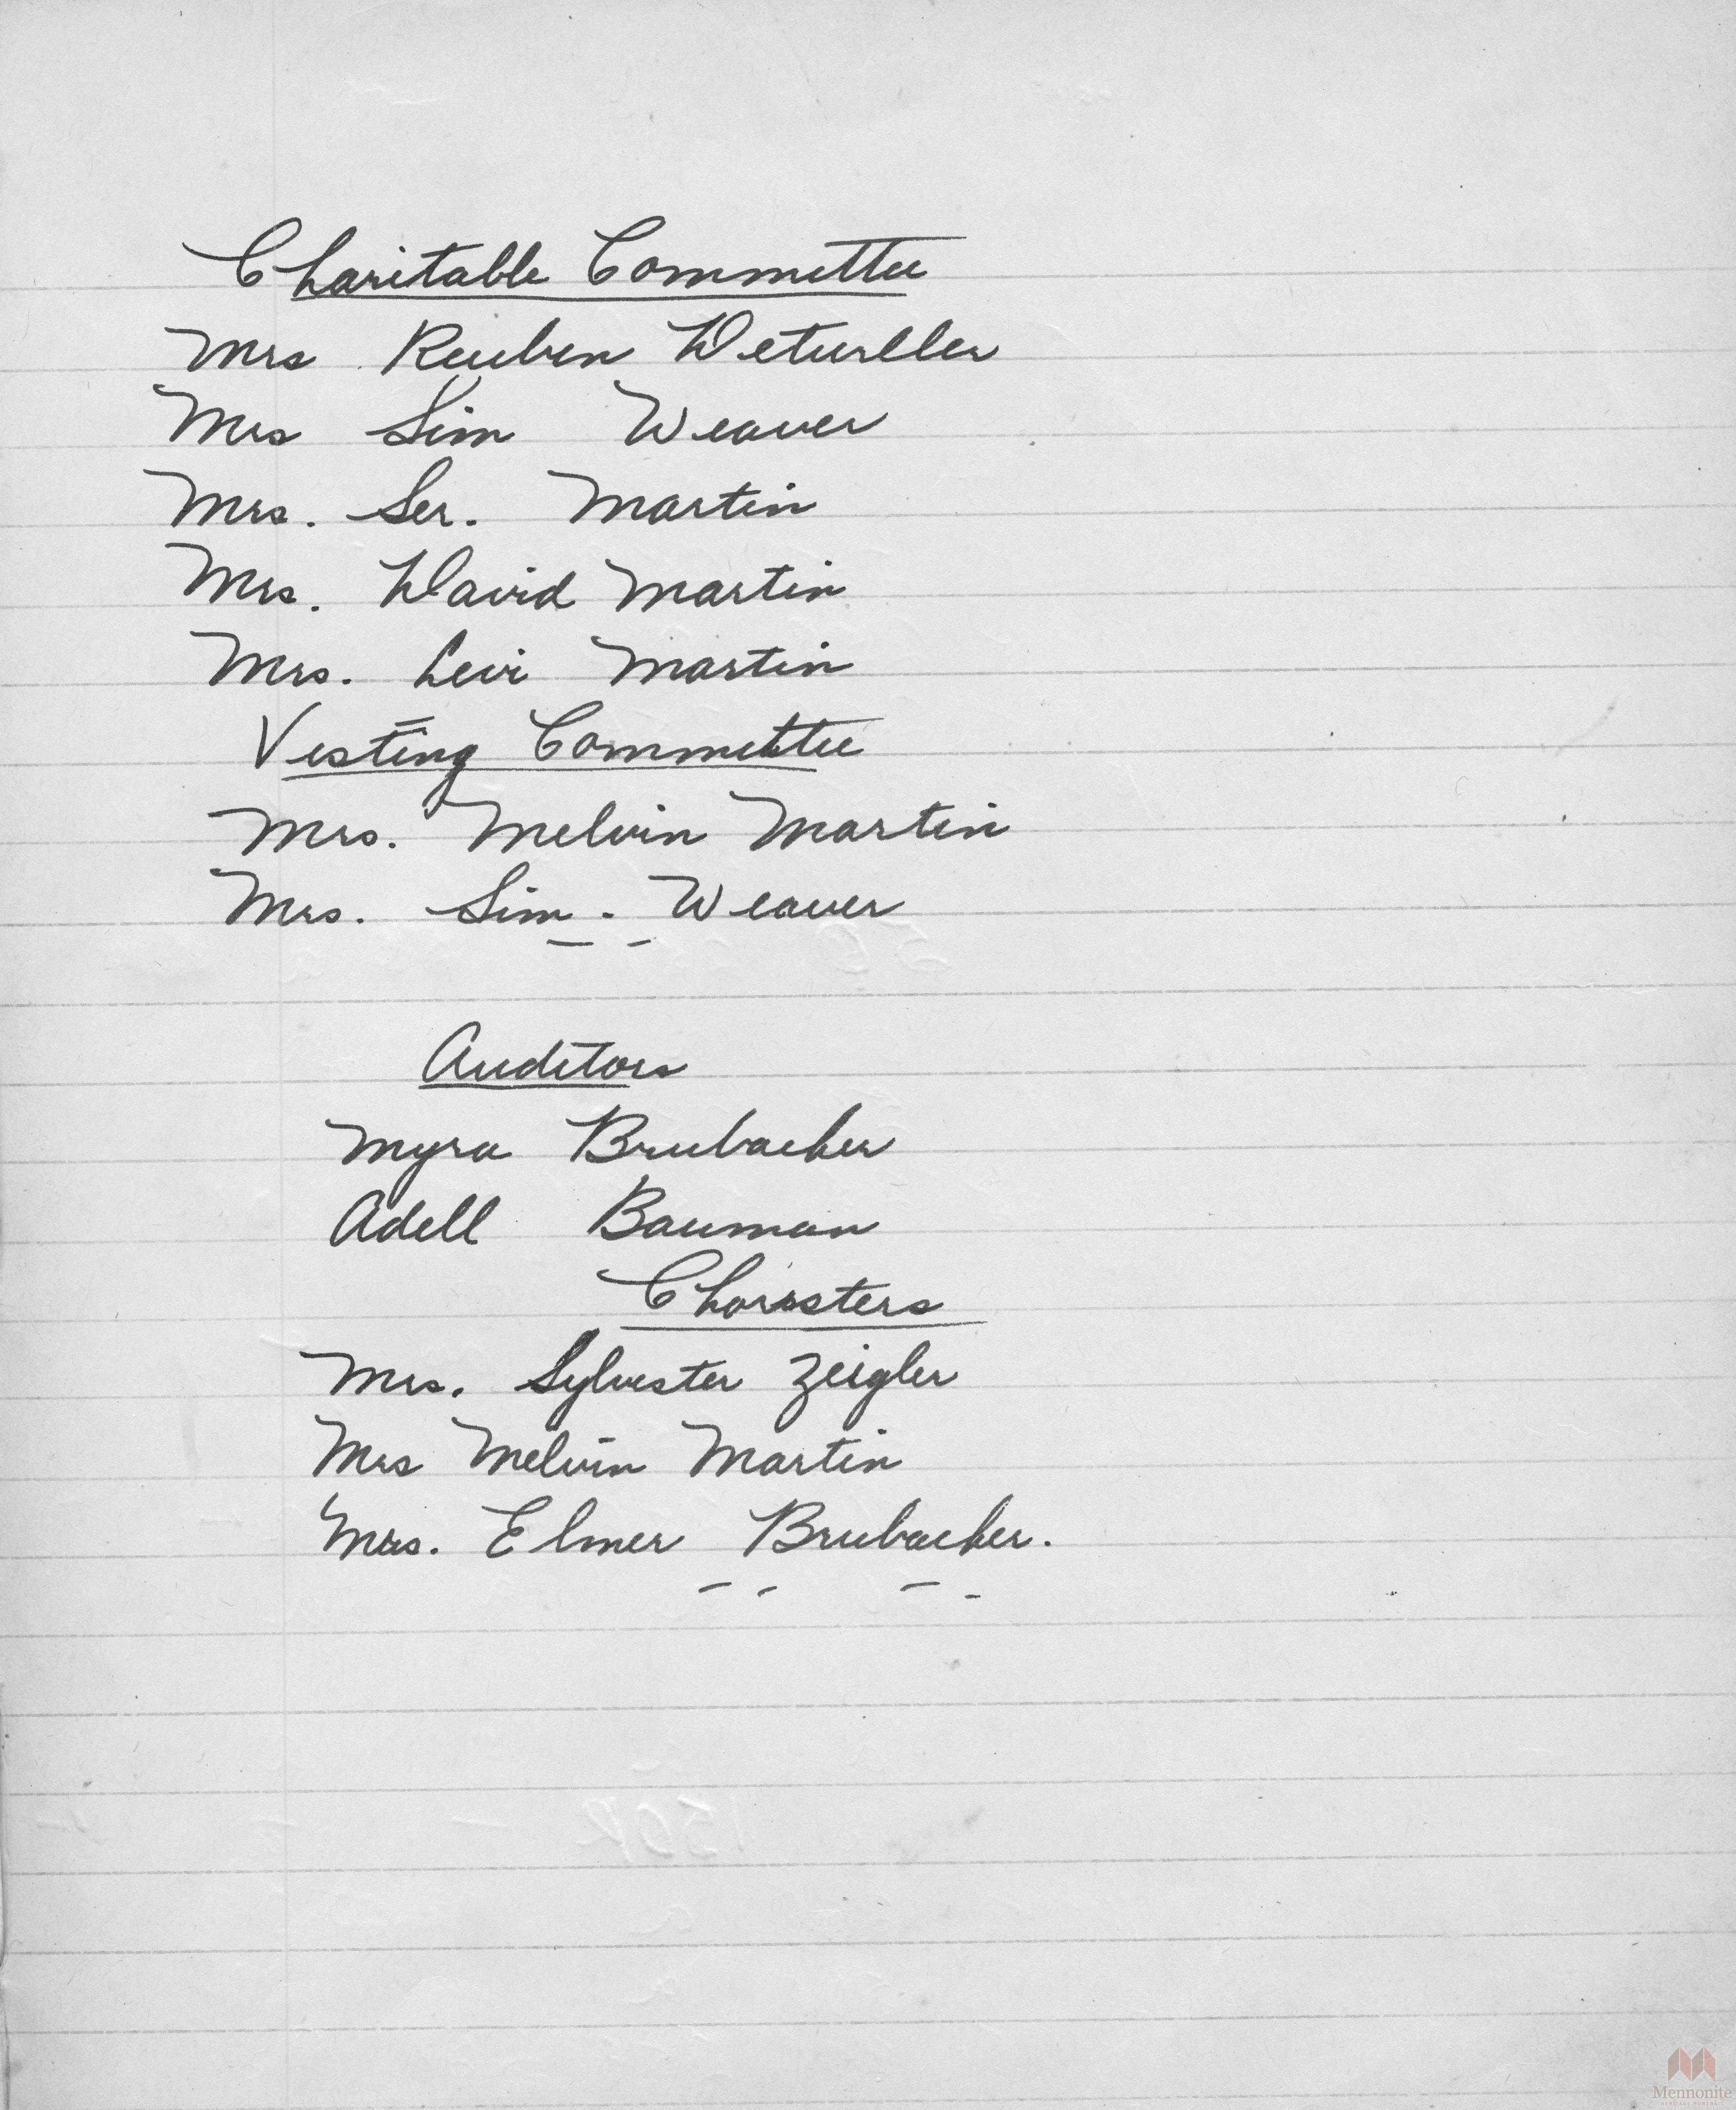 Charitable Committee
Mrs Reuben Detweiler
Mrs Sim Weaver
Mrs. Ser. Martin
Mrs. David Martin
Mrs. Levi Martin
Vesting Committee
Mrs. Melvin Martin
Mrs. Sim. Weaver
Auditors
Myra Brubacher
Adell Bauman
Choristers
Mrs. Sylvester Zeigler
Mrs Melvin Martin
Mrs. Elmer Brubacher.
Mennonite